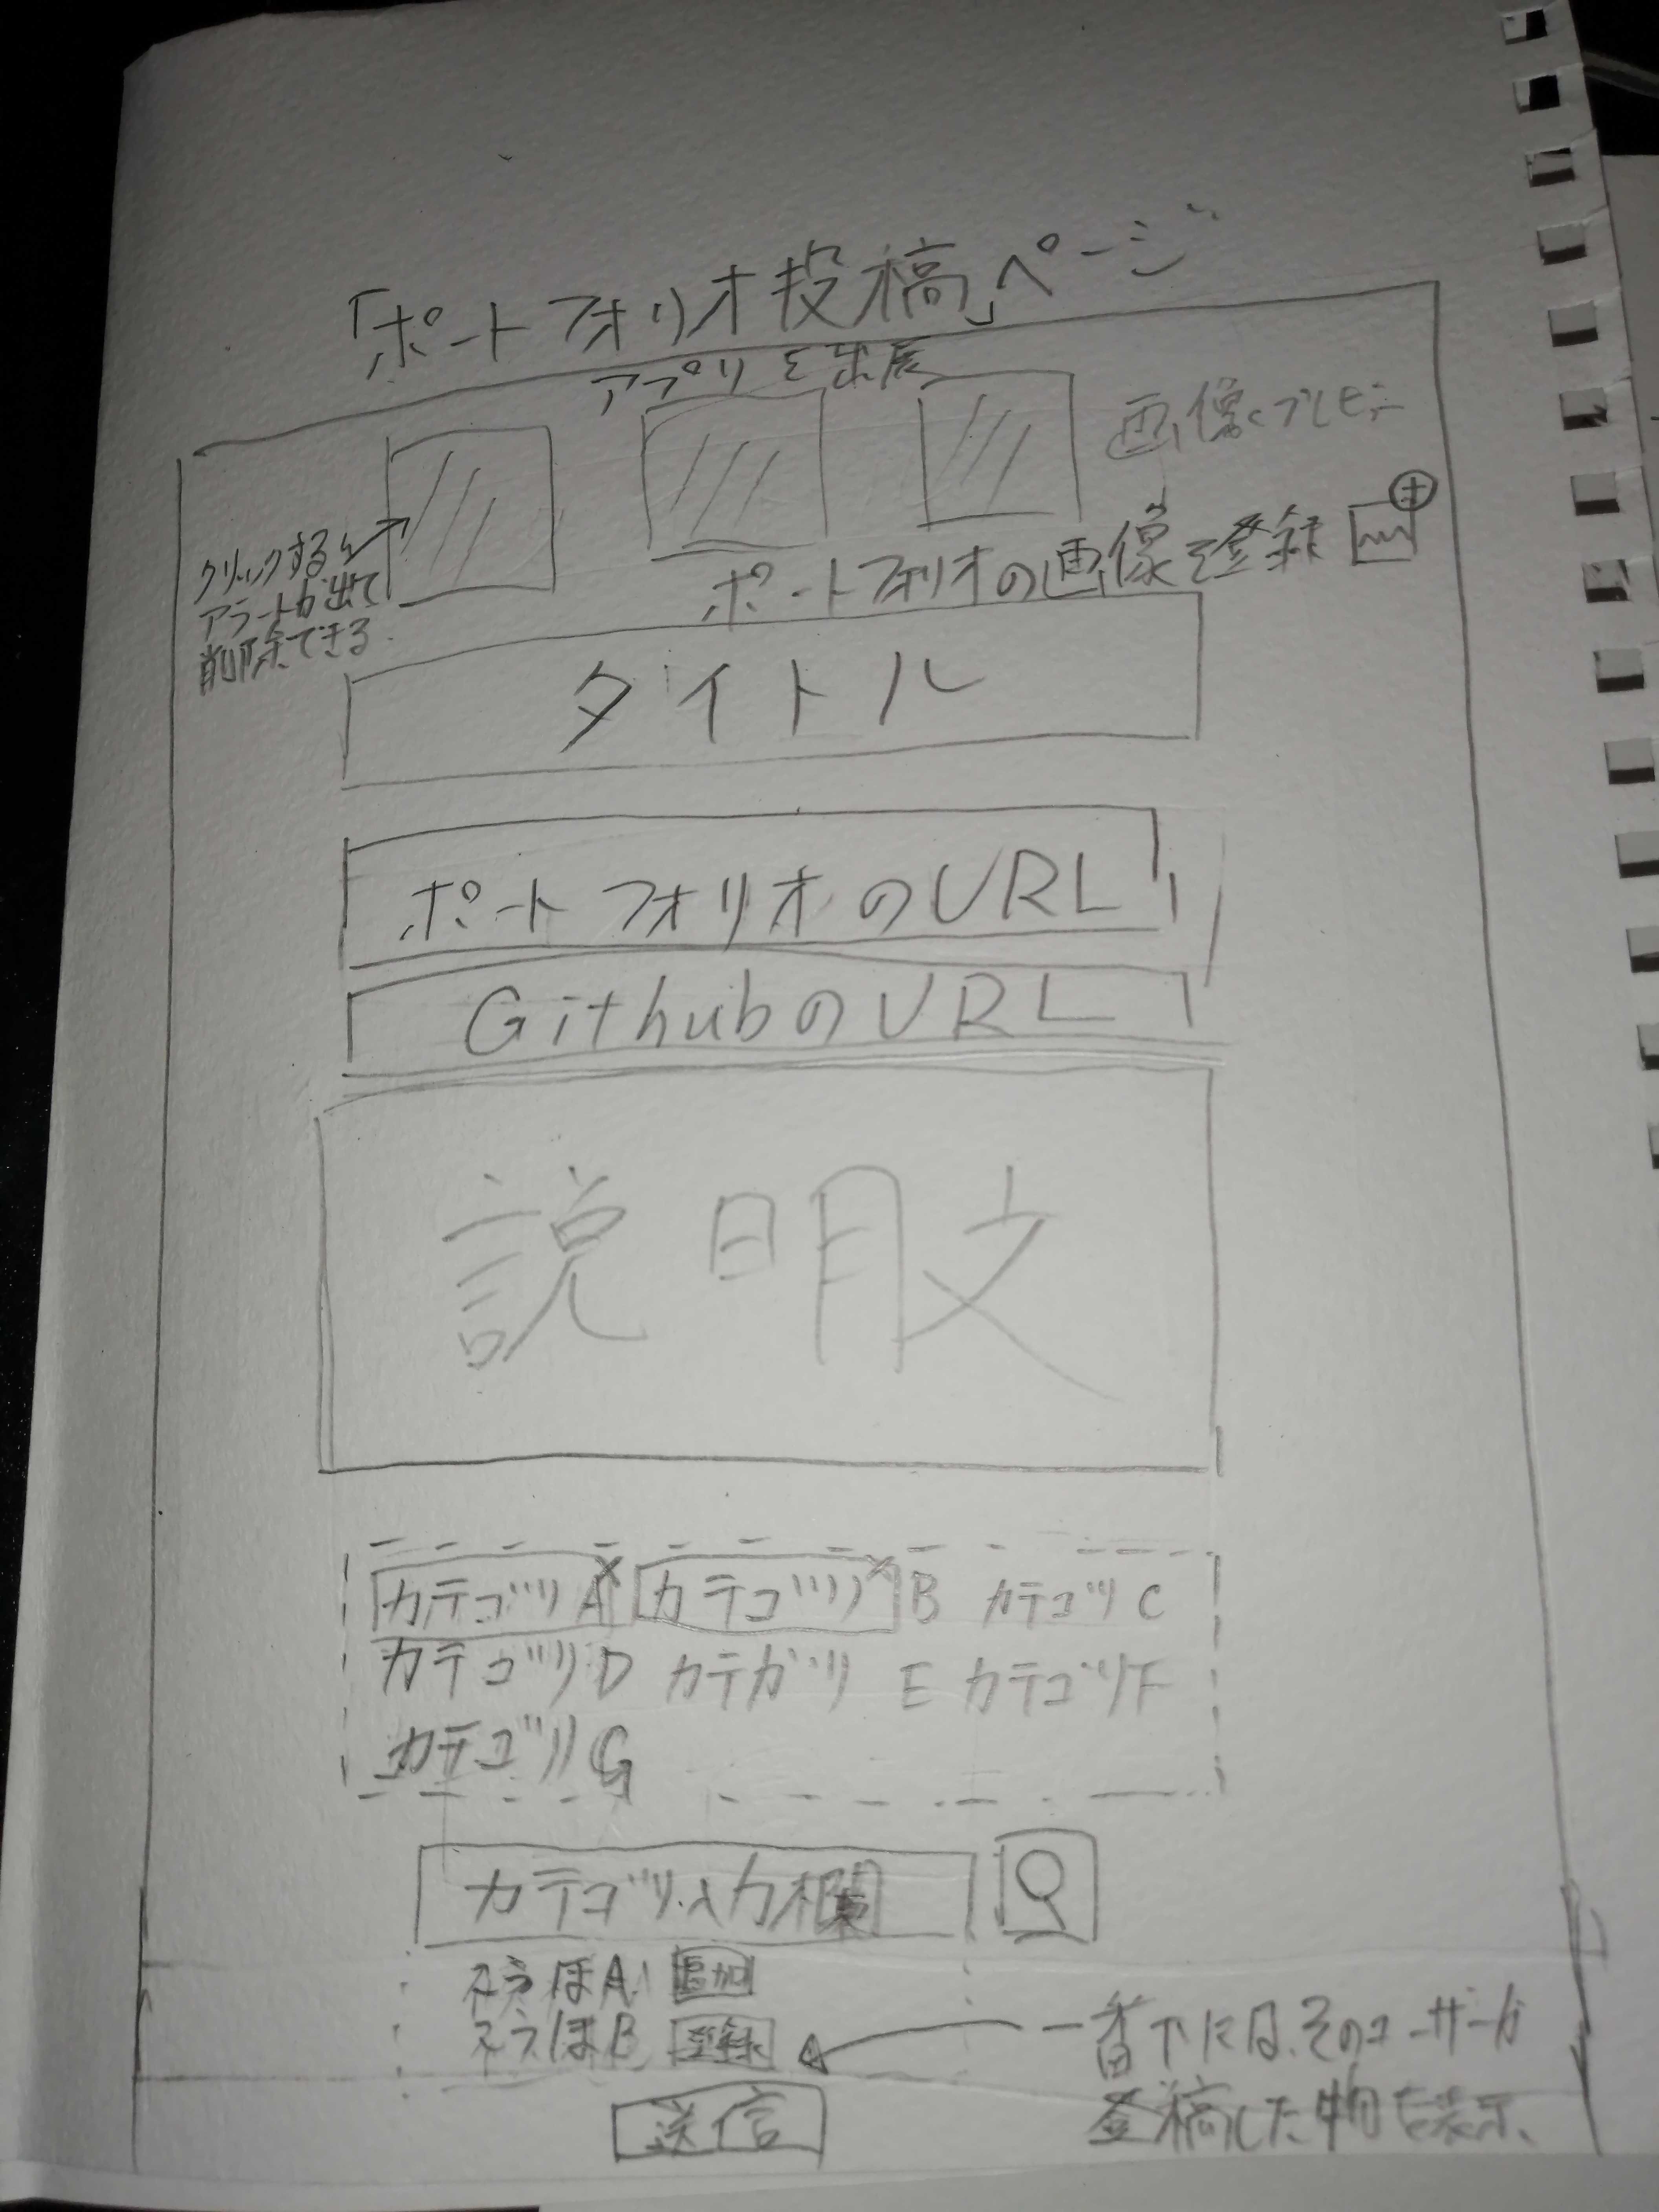 「ポートフォリオ投稿」ページ
アプリを出展
画像プレビュー
クリックすると
アラートが出て
削除できる
ポートフォリオの画像を登録
タイトル
ポートフォリオのURL
GithubのURL
説明文
カテゴリA× カテゴリ×B カテゴリC
カテゴリD カテガリE カテゴリF
カテゴリG
カテゴリ入力欄
こうほA 追加
こうほB 登録
一番下には、そのユーザーが
登稿した物を表示、
送信